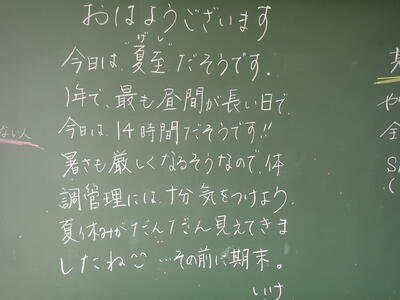 おはようございます
げし
今日は"夏至"だそうです。
1年で、最も昼間が長い日で、
今日は、14時間だそうです!!
暑さも厳しくなるそうなので、体
調管理には、十分気をつけよう。
夏休みがだんだん見えてきま
したね○○ …その前に期末。
いけ
ない人